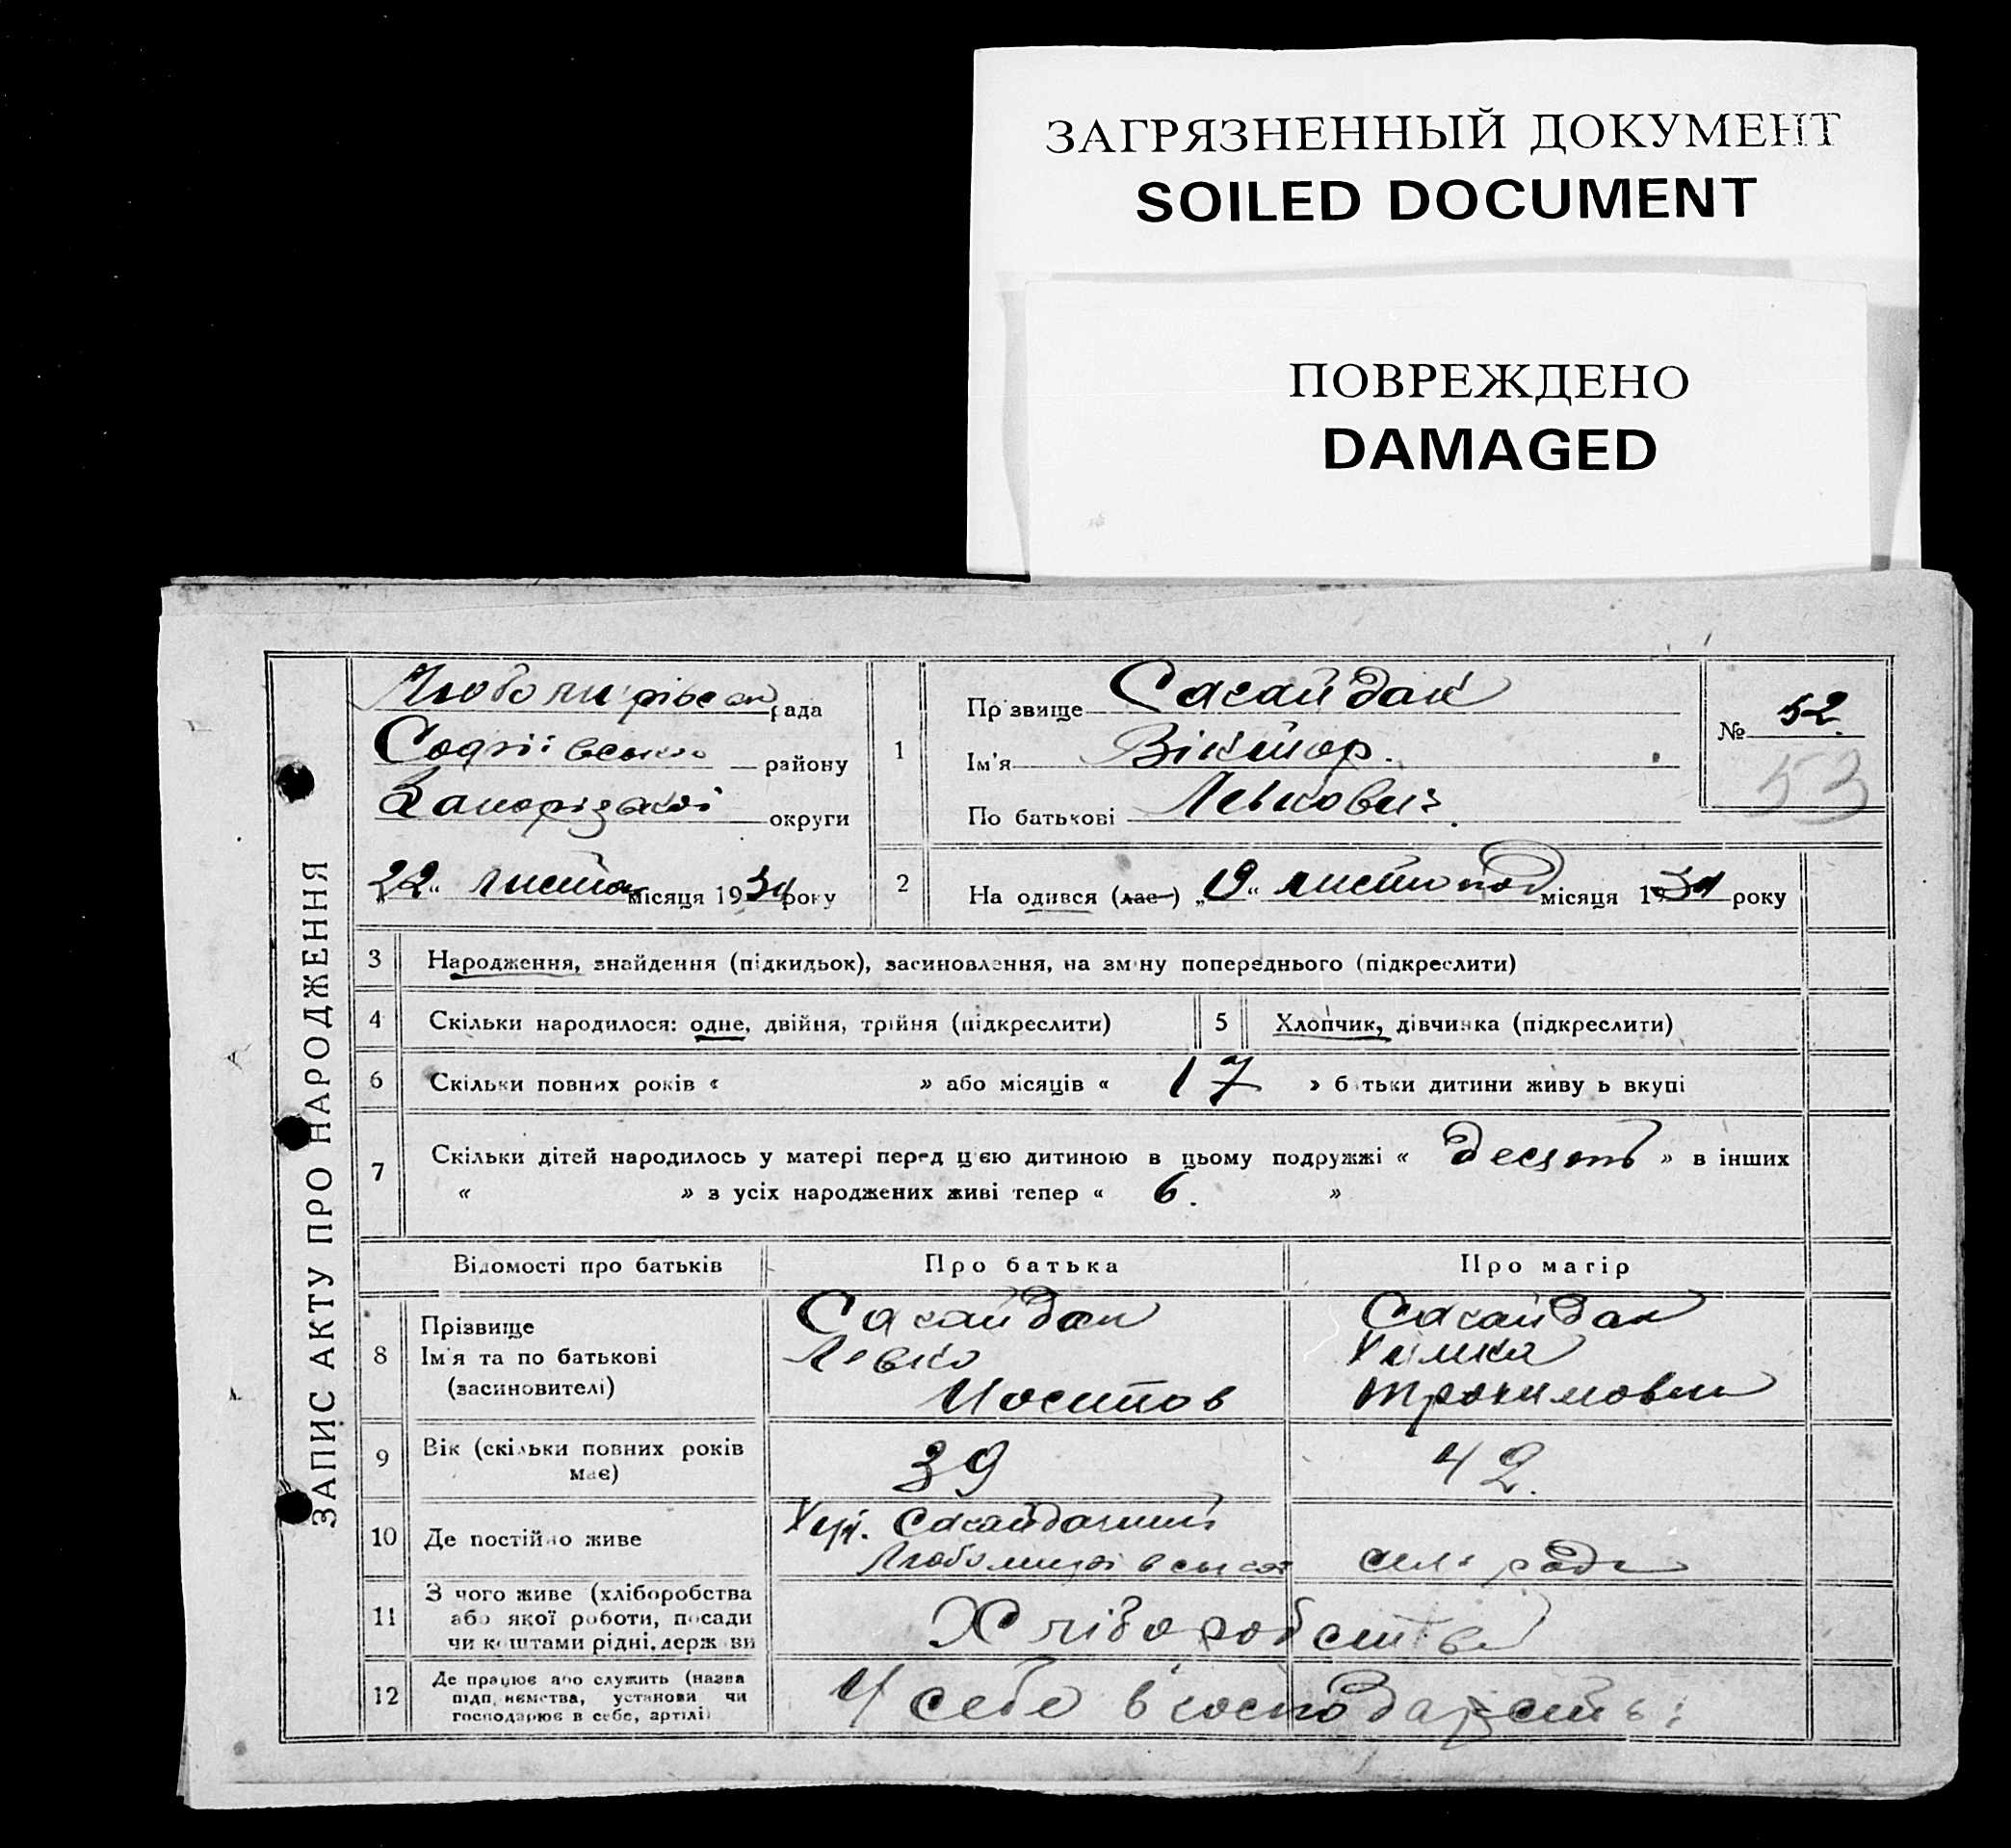 ЗАГРЯЗНЕННЫЙ ДОКУМЕНТ
SOILED DOCUMENT
ПОВРЕЖДЕНО
DAMAGED
ЗАПИС АКТУ ПРО НАРОДЖЕННЯ
Любомирівська рада
Софіївсько району
Запорізької округи
„22“ листоп місяця 1930 року
1
Прізвище Сагайдак
Ім'я Віктор.
По батькові Левкович.
№ 52
53
2
На одився (лас) „19“ листопад місяця 1930 року
3 Народження, знайдення (підкидьок), засиновлення, на зміну попереднього (підкреслити)
4 Скільки народилося: одне, двійня, трійня (підкреслити) 5 Хлопчик, дівчинка (підкреслити)
6 Скільки повних років « » або місяців « 17 » батьки дитини живу ь вкупі
7 Скільки дітей народилось у матері перед цією дитиною в цьому подружжі « десять » в інших
« » з усіх народжених живі тепер « 6. »
Відомості про батьків Про батька Про матір
8 Прізвище Сагайдак Сагайдак
Ім'я та по батькові Левко Химка
(засиновителі) Иосипов Трохимовна
9 Вік (скільки повних років має) 39 42.
10 Де постійно живе Хут. Сагайдачний
Любомирівської сіль ради
11 З чого живе (хліборобства
або якої роботи, посади
чи коштами рідні, держави
Хліборобства
12 Де працює або служить (назва
підприємства, установи чи
господарює в себе, артілі)
У себе в господарстві